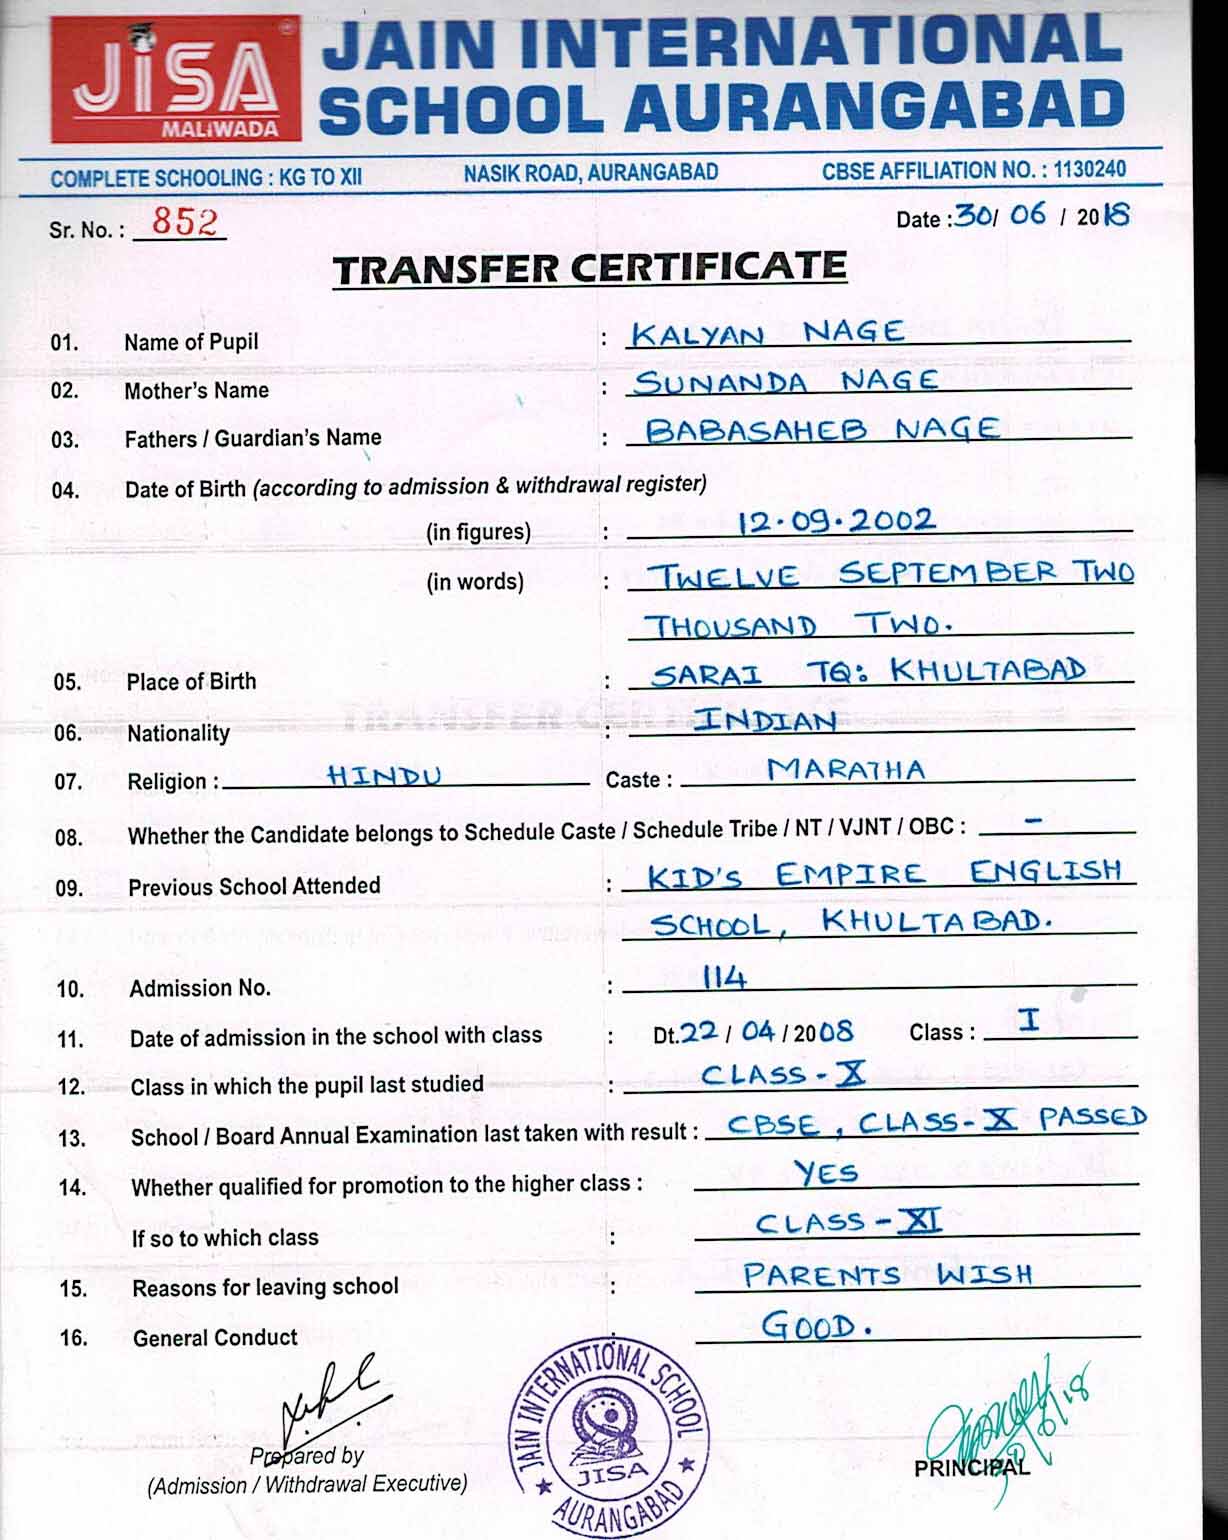 JiSA ®
MALiWADA
JAIN INTERNATIONAL
SCHOOL AURANGABAD
COMPLETE SCHOOLING : KG TO XII NASIK ROAD, AURANGABAD CBSE AFFILIATION NO. : 1130240
Sr. No. : 852 Date : 30/ 06 / 2018
TRANSFER CERTIFICATE
01. Name of Pupil : KALYAN NAGE
02. Mother's Name : SUNANDA NAGE
03. Fathers / Guardian's Name : BABASAHEB NAGE
04. Date of Birth (according to admission & withdrawal register)
(in figures) : 12.09.2002
(in words) : TWELVE SEPTEMBER TWO
THOUSAND TWO.
05. Place of Birth : SARAI TQ: KHULTABAD
06. Nationality : INDIAN
07. Religion : HINDU Caste : MARATHA
08. Whether the Candidate belongs to Schedule Caste / Schedule Tribe / NT / VJNT / OBC : -
09. Previous School Attended : KID'S EMPIRE ENGLISH
SCHOOL, KHULTABAD.
10. Admission No. : 114
11. Date of admission in the school with class : Dt.22 / 04 / 2008 Class : I
12. Class in which the pupil last studied : CLASS - X
13. School / Board Annual Examination last taken with result : CBSE, CLASS- X PASSED
14. Whether qualified for promotion to the higher class : YES
If so to which class : CLASS - XI
15. Reasons for leaving school : PARENTS WISH
16. General Conduct : GOOD.
JAIN INTERNATIONAL SCHOOL
JISA
★ AURANGABAD ★
Prepared by
(Admission / Withdrawal Executive)
PRINCIPAL